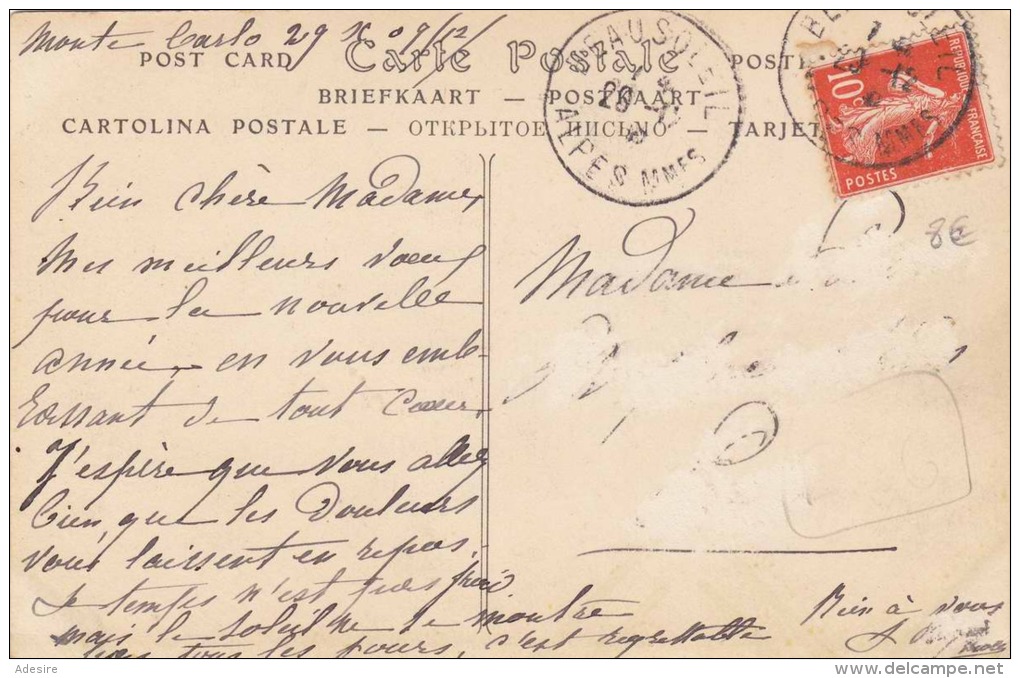 Monte Carlo 29 X 09/12/
POST CARD Carte Postale
BRIEFKAART — POSTKAART
CARTOLINA POSTALE — ОТКРЫТОЕ ПИСЬМО — TARJE
BEAUSOLEIL
ALPES MMES
10c
REPUBLIQUE FRANÇAISE
POSTES
8€
Bien chère Madame,
Mes meilleurs vœux
pour la nouvelle
année, en vous emb-
rassant de tout cœur.
J'espère que vous allez
bien que les douleurs
vous laissent en repos.
Le temps n'est pas froid
mais le soleil ne se montre
pas tous les jours, c'est regrettable
Bien à vous
Madame
Adesire
delcampe.net